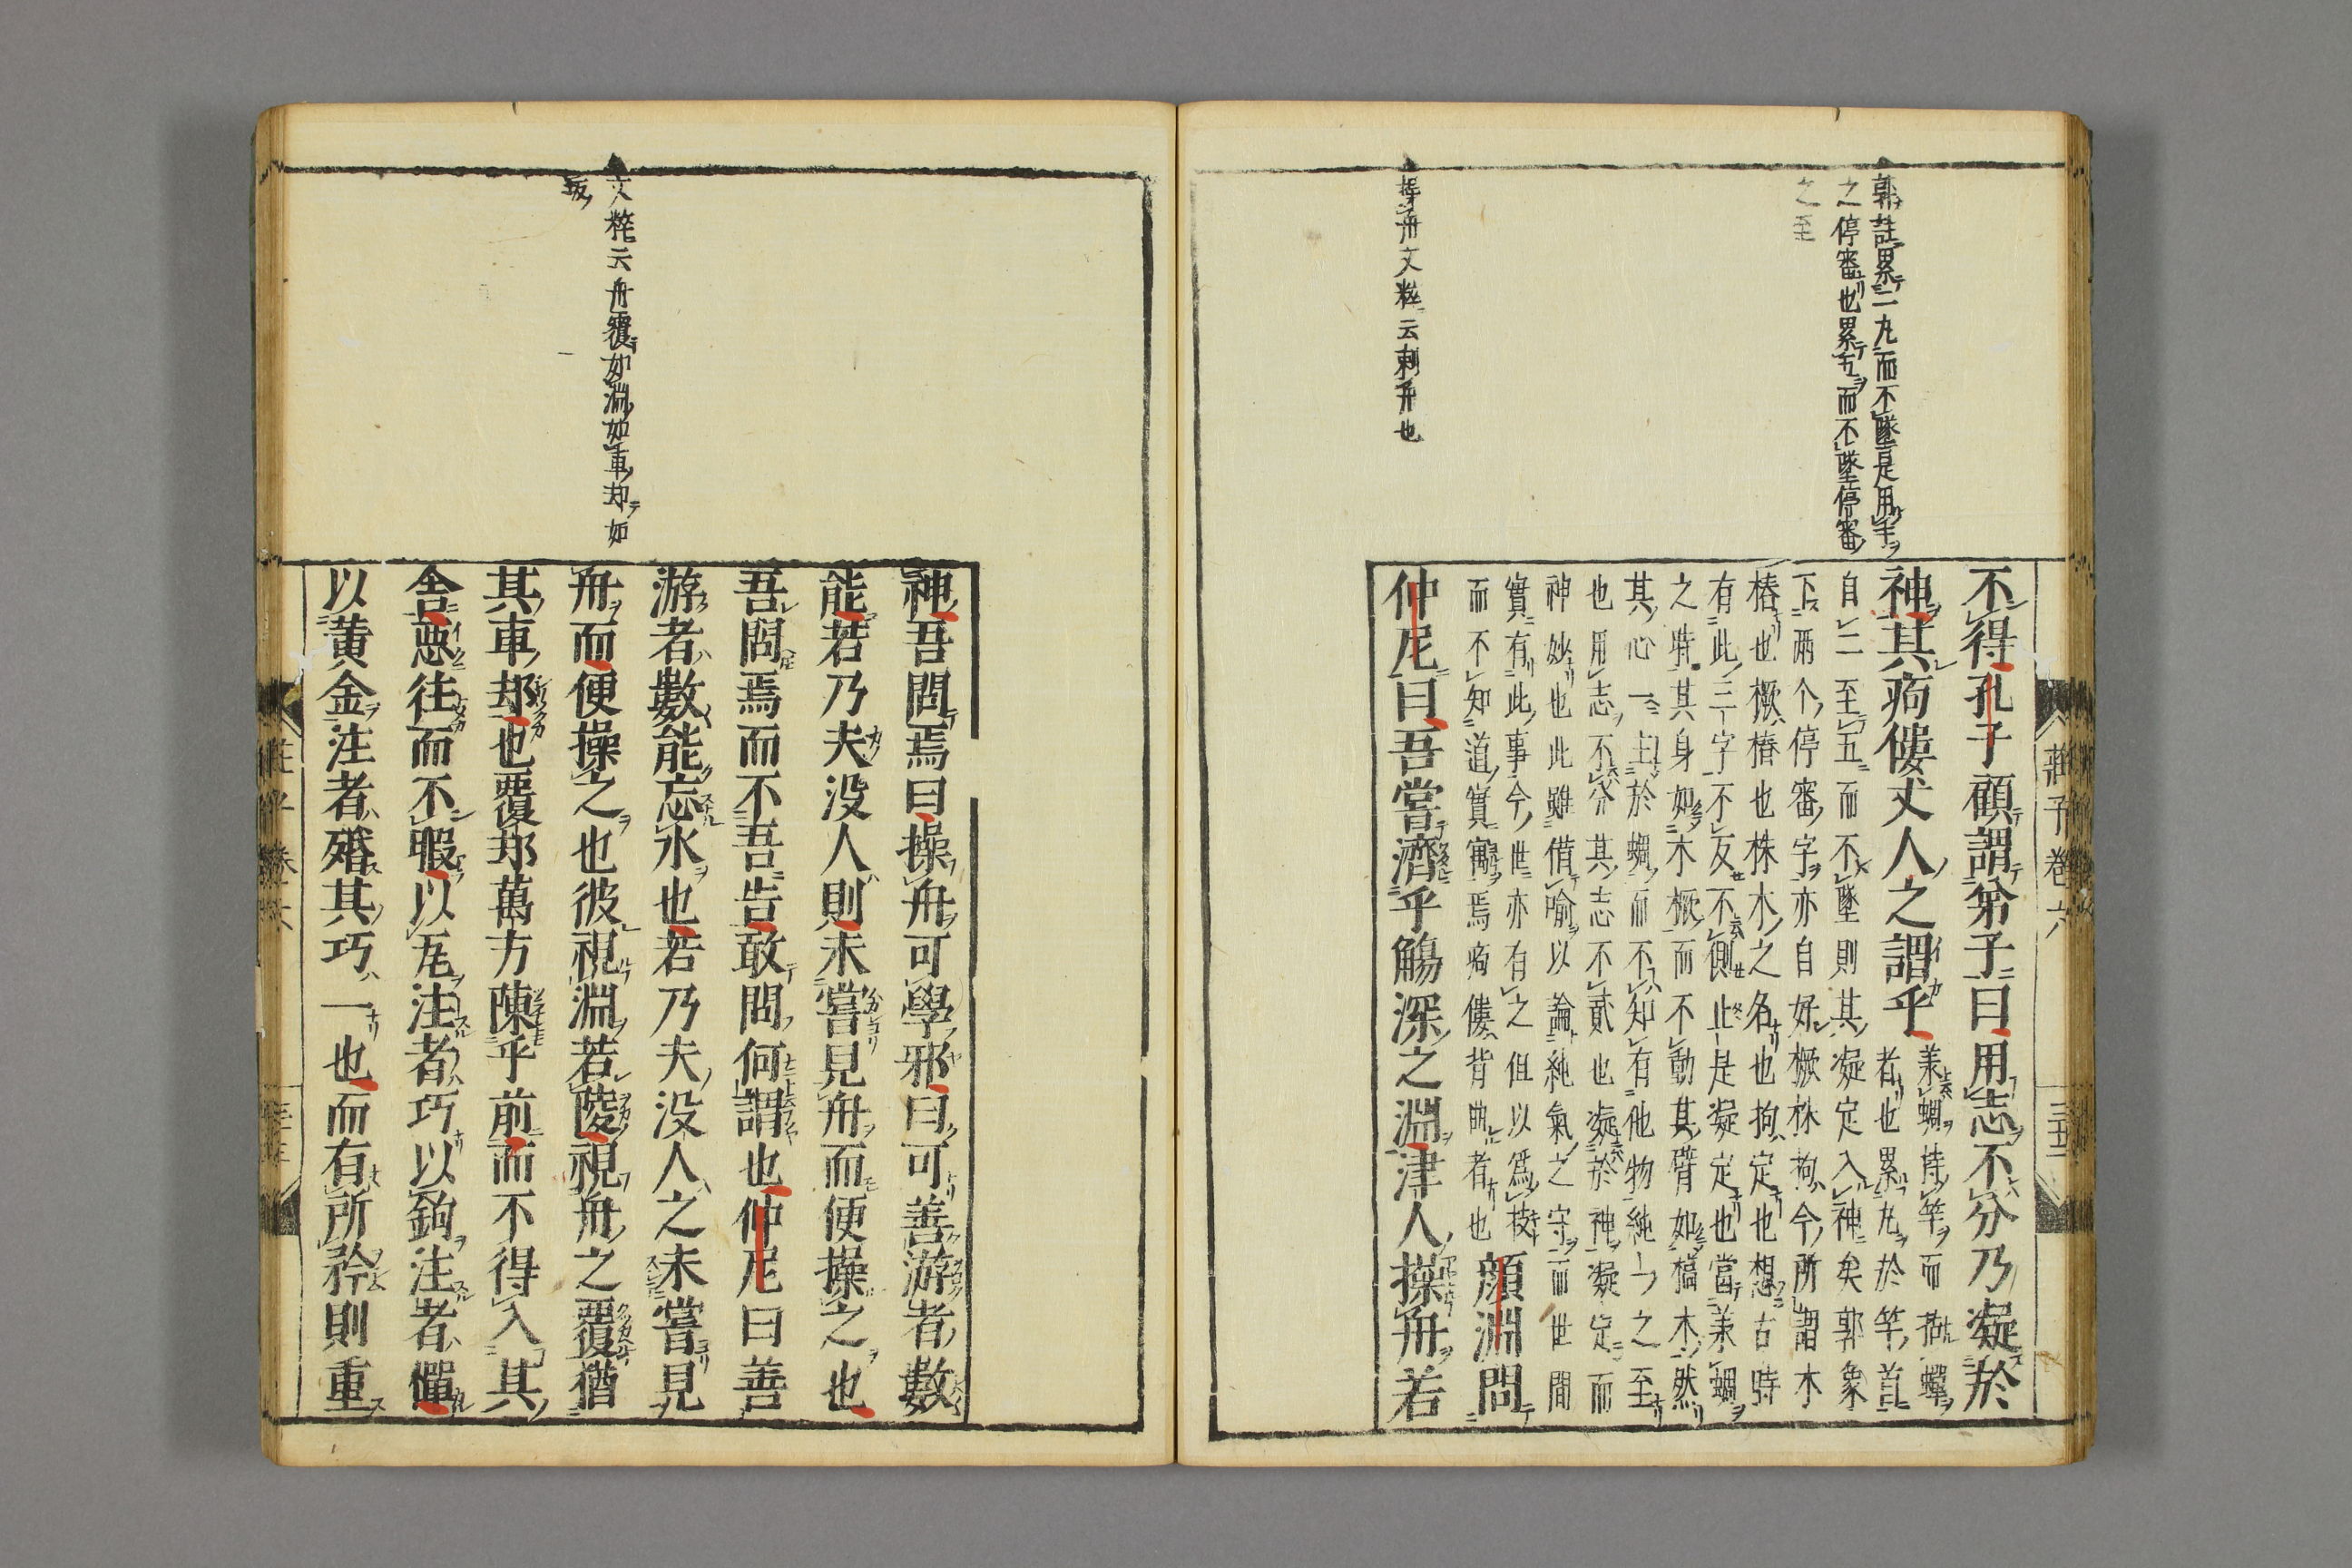 郭註累二丸而不墜是用手
之停審也累五而不墜停審
之至
操舟文粹云刺舟也
莊子卷六
不得孔子顧謂弟子曰用志不分乃凝於
神其痀僂丈人之謂乎
承蜩持竿而拈蟬
者也累丸於竿首
自二至五而不墜則其凝定入神矣郭象
下兩个停審字亦自好橛株拘今所謂木
樁也橛樁也株木之名也拘定也想古時
有此三字不反不側止是凝定也當承蜩
之時其身如木橛而不動其臂如槁木然
其心一主於蜩而不知有他物純一之至
也用志不分其志不貳也凝於神凝定而
神妙也此雖借喻以論純氣之守而世間
實有此事今世亦有之但以爲枝
而不知道實寓焉痀僂背曲者也
顔淵問
仲尼曰吾嘗濟乎觴深之淵津人操舟若
文粹云舟覆如淵如車却如
坂
神吾問焉曰操舟可學邪曰可善游者數
能若乃夫没人則未嘗見舟而便操之也
吾問焉而不吾告敢問何謂也仲尼曰善
游者數能忘水也若乃夫没人之未嘗見
舟而便操之也彼視淵若陵視舟之覆猶
其車却也覆却萬方陳乎前而不得入其
舍惡往而不暇以瓦注者巧以鉤注者憚
以黄金注者殙其巧一也而有所矜則重